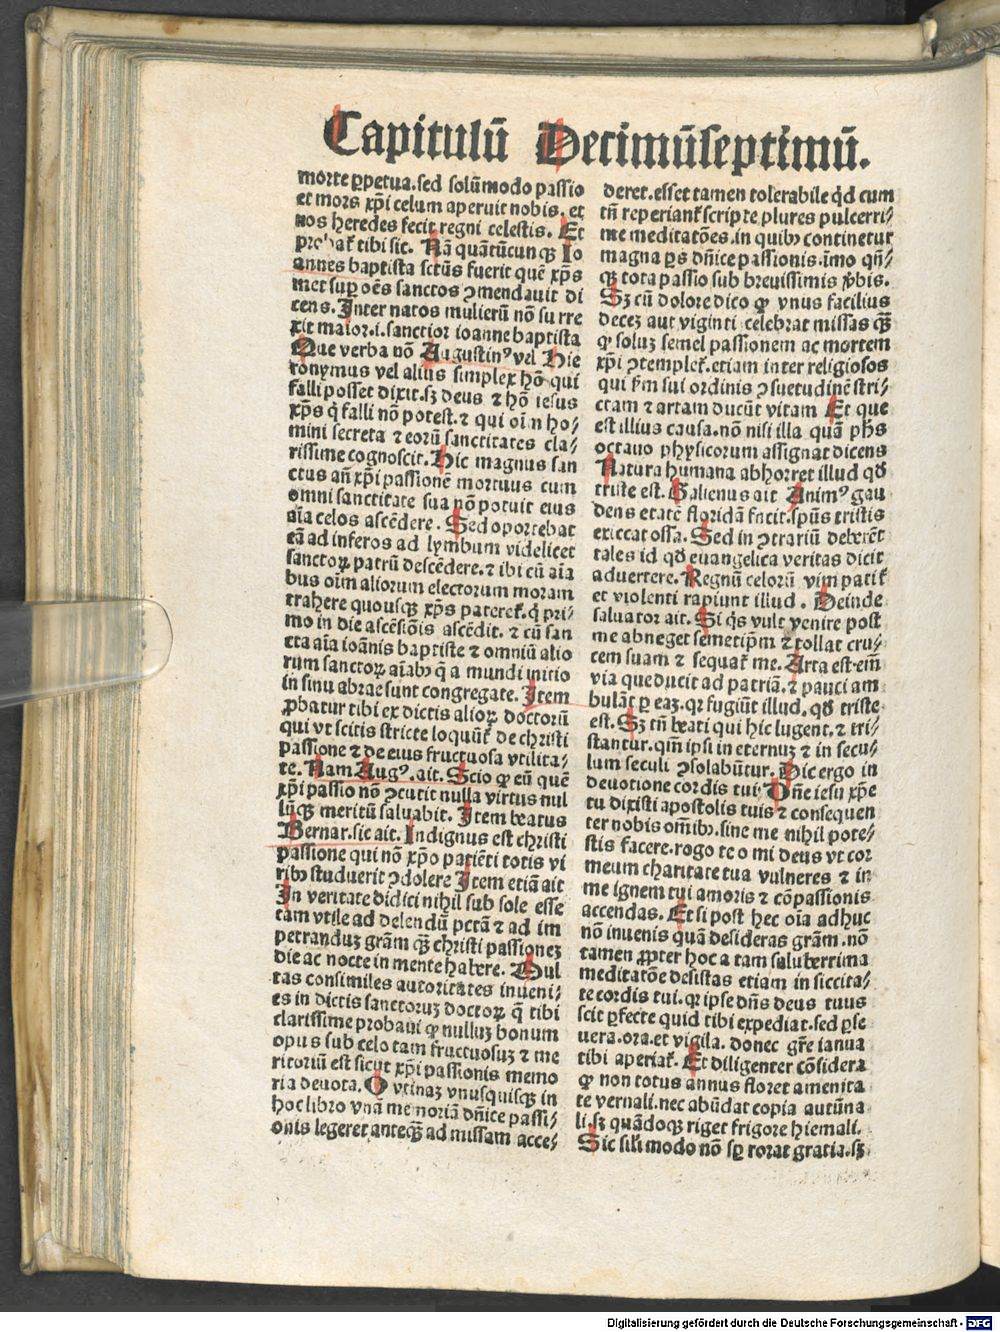 Capitulū Decimūseptimū.
morte ꝑpetua. sed solūmodo passio
et mors xp̄i celum aperuit nobis. et
nos heredes fecit regni celestis. Et
probat᷑ tibi sic. Nā quātūcunqꝫ Io
annes baptista sctūs fuerit quē xp̄s
met suꝑ oēs sanctos ꝯmendauit di
cens. Inter natos mulierū nō surre
xit maior .i. sanctior ioanne baptista
Que verba nō Augustinꝰ vel Hie
ronymus vel alius simplex hō qui
falli posset dixit. sꝫ deus ⁊ hō iesus
xp̄s q̄ falli nō potest. ⁊ qui oīn ho/
mini secreta ⁊ eorū sanctitates cla/
rissime cognoscit. Hic magnus san
ctus an̄ xp̄i passionē mortuus cum
omni sanctitate sua nō potuit eius
aīa celos ascēdere. Sed oportebat
eā ad inferos ad lymbum videlicet
sanctoꝝ patrū descēdere. ⁊ ibi cū aīa
bus oīm aliorum electorum moram
trahere quousqꝫ xp̄s pateret᷑. q̄ pri/
mo in die ascēsiōis ascēdit. ⁊ cū san
cta aīa ioānis baptiste ⁊ omniū alio
rum sanctoꝝ aīabꝰ q̄ a mundi initio
in sinu abrae sunt congregate. Item
ꝓbatur tibi ex dictis alioꝝ doctorū
qui vt scitis stricte loquūt᷑ de christi
passione ⁊ de eius fructuosa vtilita/
te. Nam Augꝰ. ait. Scio ꝙ eū quē
xp̄i passio nō ꝯcutit nulla virtus nul
lūqꝫ meritū saluabit. Item beatus
Bernar. sic ait. Indignus est christi
passione qui nō xp̄o patiēti totis vi
ribꝰ studuerit ꝯdolere Item etiā ait
In veritate didici nihil sub sole esse
tam vtile ad delendū pctā ⁊ ad im
petranduꝫ grām qꝫ̄ christi passioneꝫ
die ac nocte in mente habere. Mul
tas consimiles autoritates inueni/
es in dictis sanctoruꝫ doctoꝝ q̄ tibi
clarissime probaui ꝙ nulluꝫ bonum
opus sub celo tam fructuosuꝫ ⁊ me
ritoriū est sicut xp̄i passionis memo
ria deuota. O vtinaꝫ vnusquisqꝫ in
hoc libro vnā memoriā dn̄ice passi/
onis legeret anteqꝫ̄ ad missam acce/
deret. esset tamen tolerabile qd̄ cum
tn̄ reperiant᷑ scripte plures pulcerri/
me meditatōes. in quibꝰ continetur
magna ꝑs dn̄ice passionis. īmo qn̄/
qꝫ tota passio sub breuissimis v̄bis.
Sꝫ cū dolore dico ꝙ vnus facilius
deceꝫ aut viginti celebrat missas qꝫ̄
ꝙ soluꝫ semel passionem ac mortem
xp̄i ꝯtemplet᷑. etiam inter religiosos
qui fm̄ sui ordinis ꝯsuetudinē stri/
ctam ⁊ artam ducūt vitam Et que
est illius causa. nō nisi illa quā ph̄s
octauo physicorum assignat dicens
Natura humana abhorret illud qd̄
triste est. Galienus ait Animꝰ gau
dens etatē floridā facit. spūs tristis
exiccat ossa. Sed in ꝯtrariū deberēt
tales id qd̄ euangelica veritas dicit
aduertere. Regnū celorū vim patit᷑
et violenti rapiunt illud. Deinde
saluator ait. Si q̄s vult venire post
me abneget semetip̄m ⁊ tollat cru/
cem suam ⁊ sequat᷑ me. Arta est em̄
via que ducit ad patriā. ⁊ pauci am
bulāt ꝑ eaꝫ. qꝛ fugiūt illud. qd̄ triste
est. Sꝫ tn̄ beati qui hic lugent. ⁊ tri/
stantur. qm̄ ipsi in eternuꝫ ⁊ in secu/
lum seculi ꝯsolabūtur. Dic ergo in
deuotione cordis tui. Dn̄e iesu xp̄e
tu dixisti apostolis tuis ⁊ consequen
ter nobis om̄ibꝰ. sine me nihil pote/
stis facere. rogo te o mi deus vt cor
meum charitate tua vulneres ⁊ in
me ignem tui amoris ⁊ cōpassionis
accendas. Et si post hec oīa adhuc
nō inuenis quā desideras grām. nō
tamen ꝓpter hoc a tam saluberrima
meditatōe desistas etiam in siccita/
te cordis tui. qꝛ ipse dn̄s deus tuus
scit ꝑfecte quid tibi expediat. sed ꝑse
uera. ora. et vigila. donec gr̄e ianua
tibi aperiat᷑. Et diligenter cōsidera
ꝙ non totus annus floret amenita
te vernali. nec abūdat copia autūna
li. sꝫ quādoqꝫ riget frigore hiemali.
Sic sili modo nō sꝑ rorat gratia. sꝫ
Digitalisierung gefördert durch die Deutsche Forschungsgemeinschaft - DFG